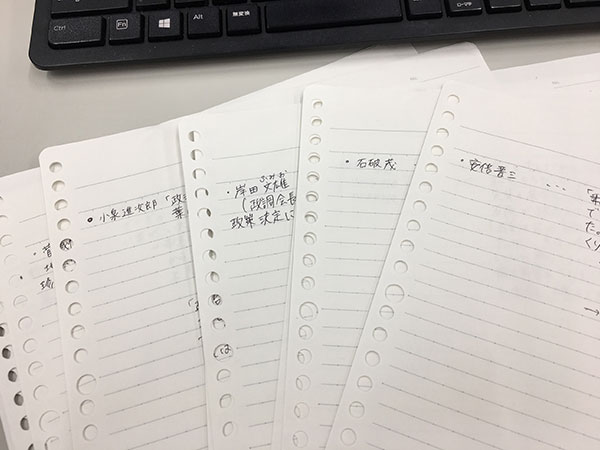 Ctrl
Fn
Alt
無変換
ローマ字
・小泉進次郎「政
葉
ふみお
・岸田文雄
(政調会長
政策決定に
は
・石破茂
・安倍晋三 ...
て
た。
くり
→